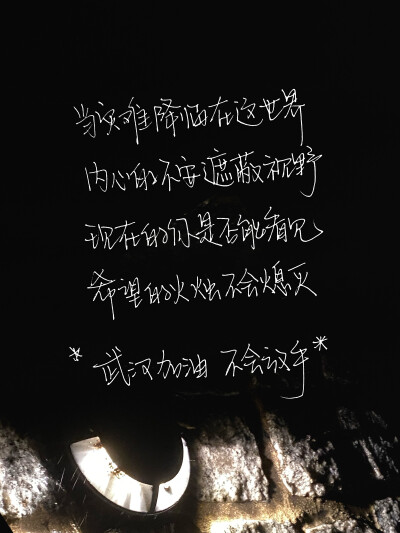 当灾难降临在这世界
内心的不安遮蔽视野
现在的你是否能看见
希望的火烛不会熄灭
*武汉加油 不会*